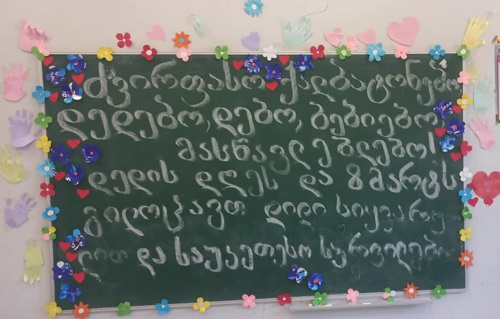 ძვირფასო ქალბატონებო
დედებო, დებო, ბებიებო,
მასწავლებლებო!
დედის დღეს და 8 მარტს
გილოცავთ დიდი სიყვარუ
ლით და საუკეთესო სურვილებით